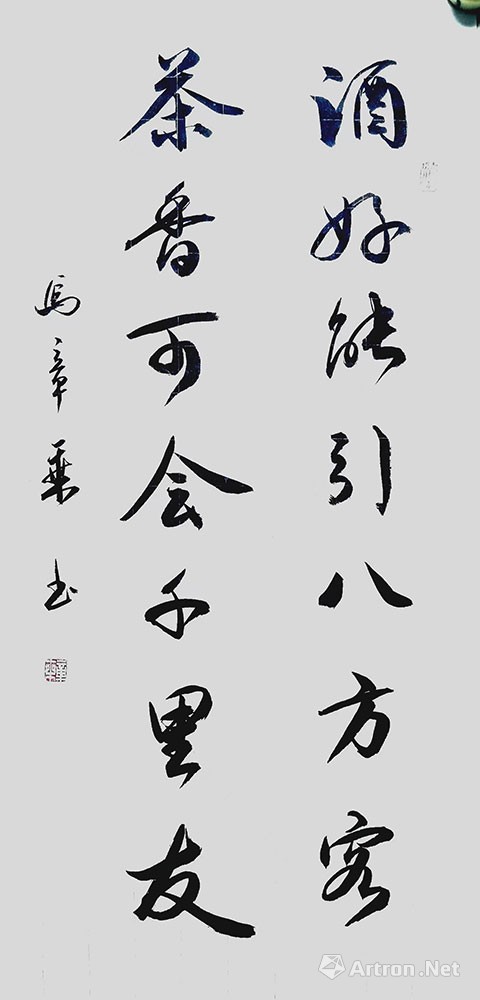 酒好能引八方客
茶香可会千里友
马章乘书
Artron.Net